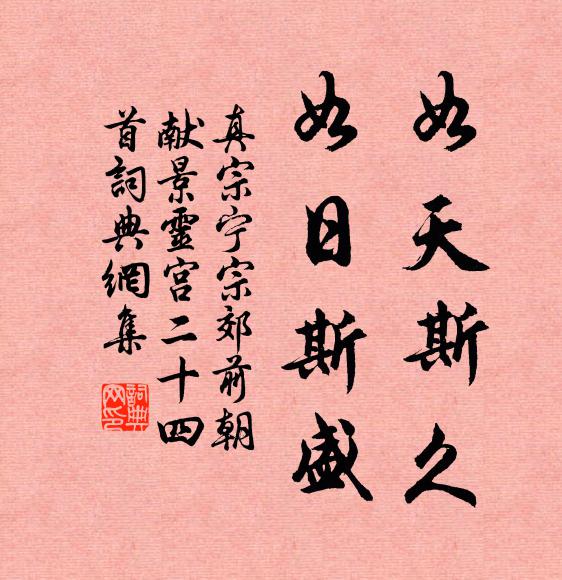 如天斯久
如日斯盛
真宗宁宗郊前朝
献景靈宫二十四
首詞典網集
詞典
网印